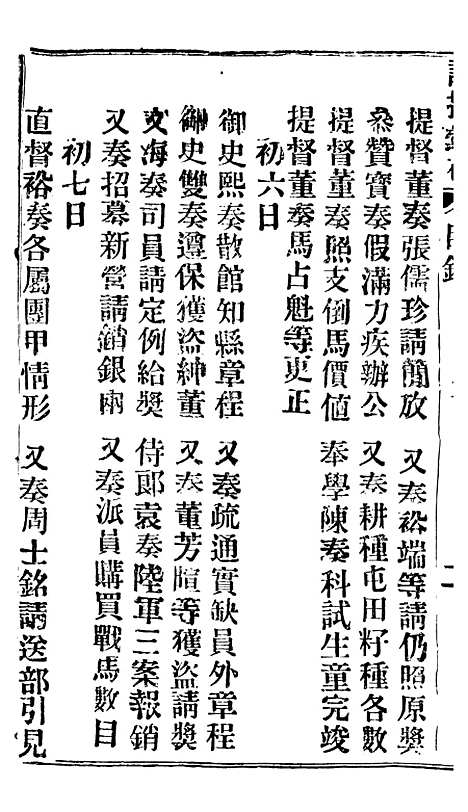 提督董奏張儒珍請簡放　又奏裕端等請仍照原獎
叅贊寶奏假滿力疾辦公　又奏耕種屯田籽種各數
提督董奏照支倒馬價値　奉學陳奏科試生童完竣
提督董奏馬占魁等更正
初六日
御史熙奏散館知縣章程　又奏疏通實缺員外章程
御史雙奏遵保獲盜紳董　又奏董芳暄等獲盜請獎
文海奏司員請定例給獎　侍郎袁奏陸軍三案報銷
又奏招募新營請銷銀兩　又奏派員購買戰馬數目
初七日
直督裕奏各屬團甲情形　又奏周士銘請送部引見